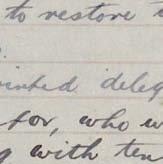 to restore
to.
ointed deleg
for, who w
g with ten